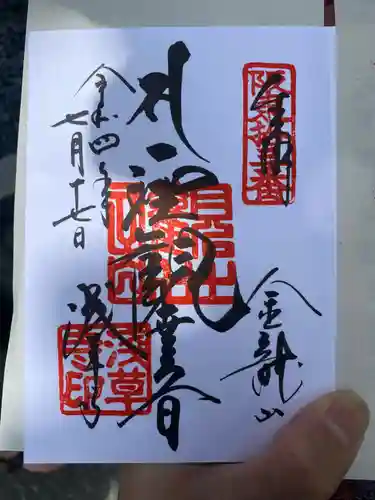 奉拝
坂東拾三番
金龍山
聖観世音
令和四年
七月十七日
浅草寺
浅草寺印